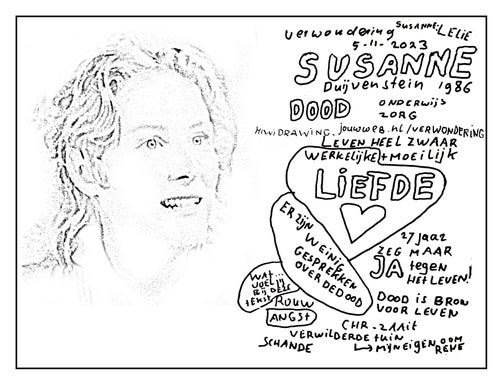 verwondering SUSANNE: LELIE
5-11-2023
SUSANNE
Duijvenstein 1986
DOOD ONDERWIJS
ZORG
HIWIDRAWING.jouwweb.nl/VERWONDERING
LEVEN HEEL ZWAAR
WERKELIJKE + MOEILIJK
LIEFDE
ER ZIJN
WEINIG
GESPREKKEN
OVER DE DOOD
27 jaar
ZEG MAAR
JA tegen
HET LEVEN!
WAT...
VOEL JIJ
BIJ DEZE
tekst
ROUW
ANGST
DOOD is BRON
VOOR LEVEN
CHR-
VERWILDERDE tuin
SCHANDE
MIJN EIGEN OOM
RENE